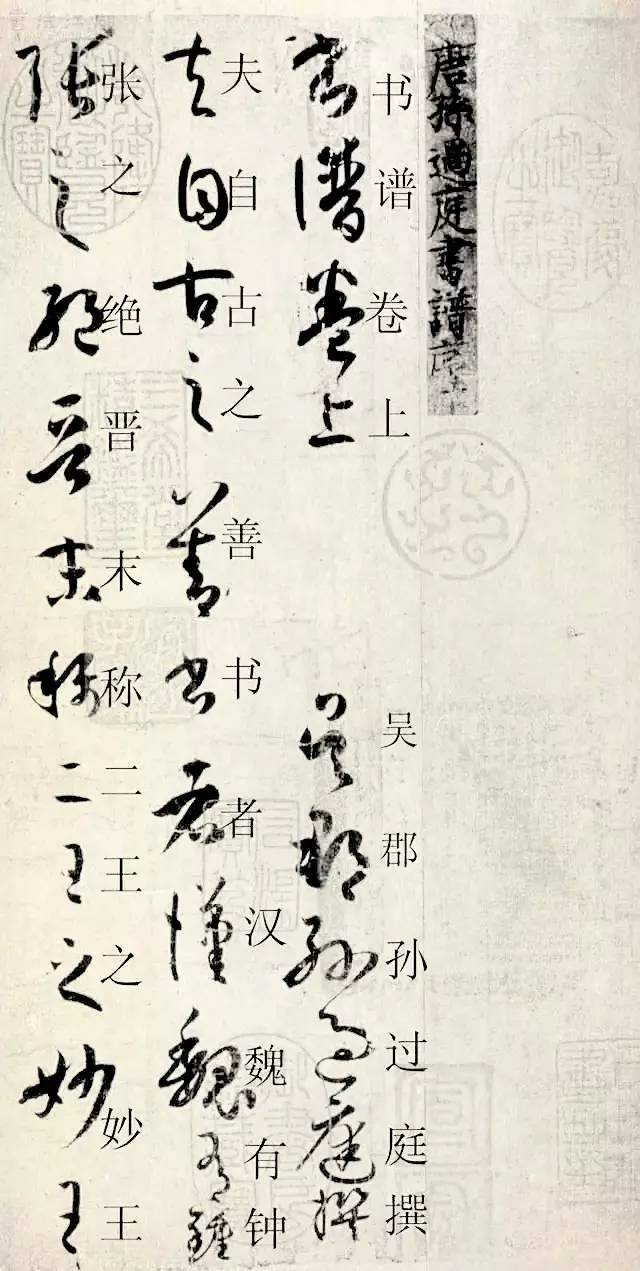 唐孫過庭書譜序
书谱卷上
吴郡孙过庭撰
書譜卷上
吳郡孫過庭撰
夫自古之善书者汉魏有钟
夫自古之善書者漢魏有鍾
张之绝晋末称二王之妙王
張之絕晉末稱二王之妙王